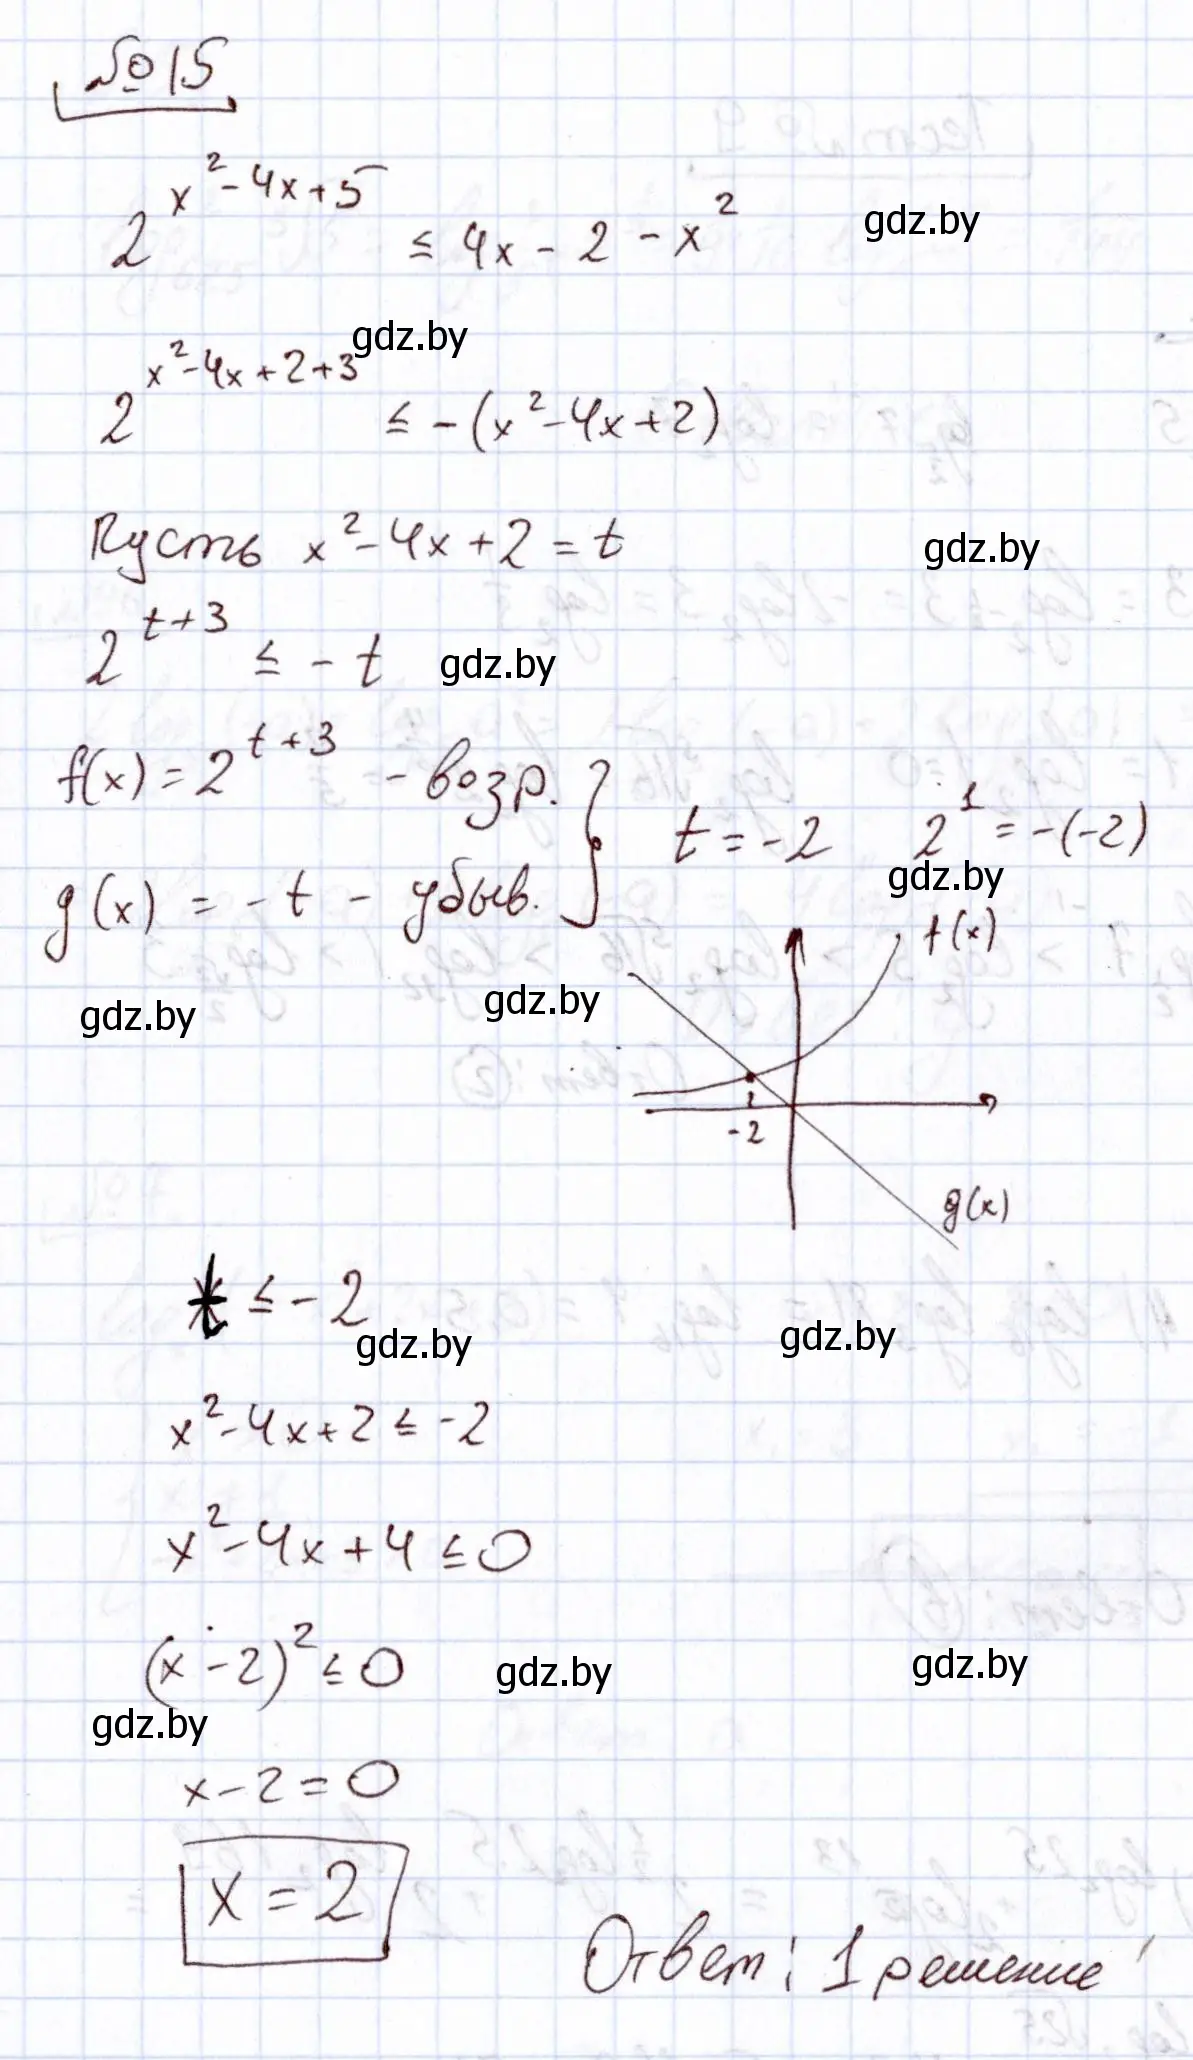 №15
2^(x²-4x+5) ≤ 4x - 2 - x²
gdz.by
gdz.by
2^(x²-4x+2+3) ≤ -(x²-4x+2)
Пусть x²-4x+2=t
gdz.by
2^(t+3) ≤ -t
gdz.by
f(x)=2^(t+3) - возр.
g(x) = -t - убыв.
t=-2 2^1=-(-2)
gdz.by
f(x)
gdz.by
gdz.by
-2
g(x)
t ≤ -2
gdz.by
gdz.by
x²-4x+2 ≤ -2
x²-4x+4 ≤ 0
(x-2)² ≤ 0
gdz.by
gdz.by
gdz.by
x-2=0
x=2
Ответ: 1 решение